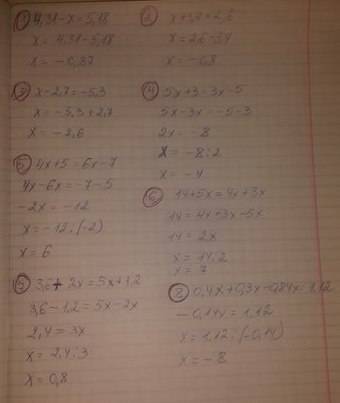 ① 4,31-x=5,18
x=4,31-5,18
x=-0,87
② x+3,4=2,6
x=2,6-3,4
x=-0,8
③ x-2,7=-5,3
x=-5,3+2,7
x=-2,6
④ 5x+3=3x-5
5x-3x=-5-3
2x=-8
x=-8:2
x=-4
⑤ 4x+5=6x-7
4x-6x=-7-5
-2x=-12
x=-12:(-2)
x=6
⑥ 14+5x=4x+3x
14=4x+3x-5x
14=2x
x=14:2
x=7
3,6+2x=5x+1,2
3,6-1,2=5x-2x
2,4=3x
x=2,4:3
x=0,8
⑧ 0,4x+0,3x-0,84x=1,12
-0,14x=1,12
x=1,12:(-0,14)
x=-8